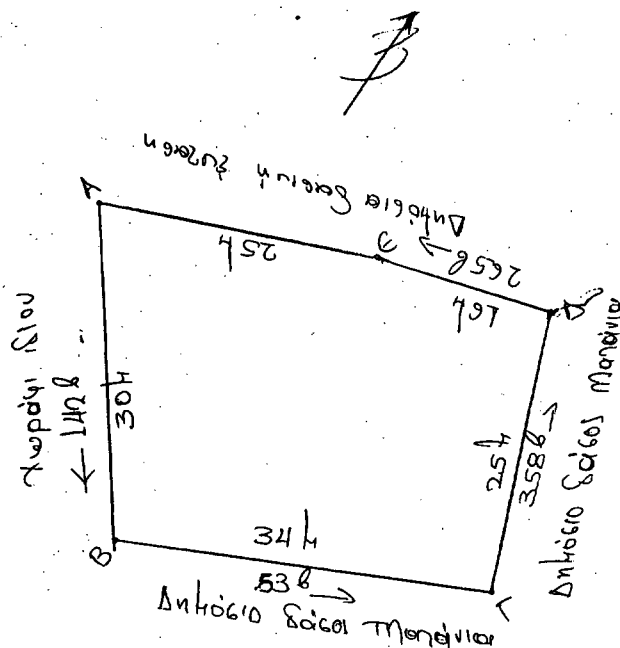 Β
Δημόσια δασική έκταση
Α
25 μ
Ε
← 265 β
16 μ
Δ
Χωράφι ιδίου
← 142 β
30 μ
25 μ
358 β →
Δημόσιο δάσος
Β
34 μ
53 β →
Γ
Δημόσιο δάσος